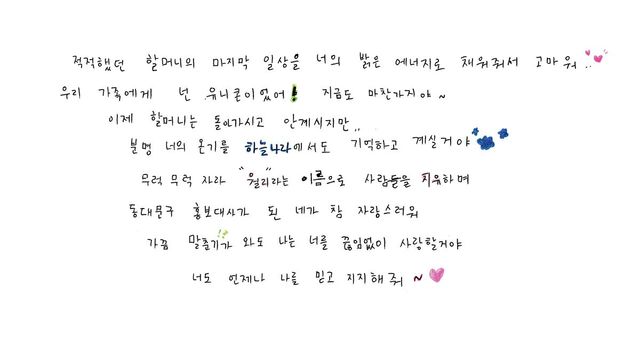 적적했던 할머니의 마지막 일상을 너의 밝은 에너지로 채워줘서 고마워..
우리 가족에게 넌 유니콘이었어! 지금도 마찬가지야~
이제 할머니는 돌아가시고 안계시지만..
분명 너의 온기를 하늘나라에서도 기억하고 계실거야
무럭 무럭 자라 "월리"라는 이름으로 사람들을 치유하며
동대문구 홍보대사가 된 네가 참 자랑스러워
가끔 말춘기가 와도 나는 너를 끊임없이 사랑할거야
너도 언제나 나를 믿고 지지해줘 ~